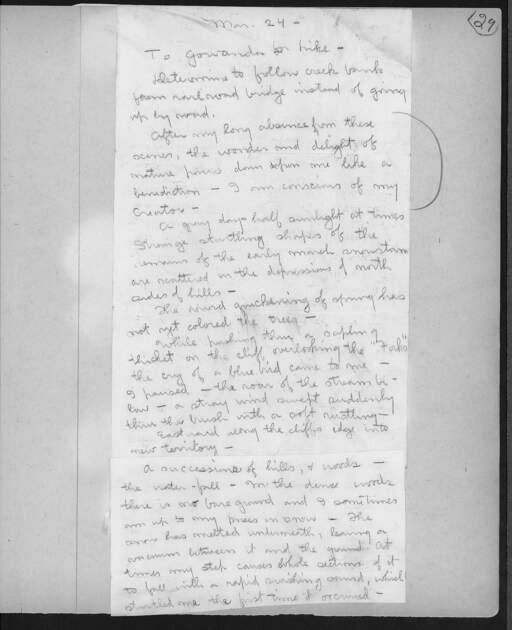 29
Mar. 24 -
To Gowanda to hike -
Determine to follow creek bank
from railroad bridge instead of going
up by road.
After my long absence from these
scenes, the wonder and delight of
nature pours down upon me like a
benediction - I am conscious of my
Creator -
A gray day - half sunlight at times
Strange startling shapes of the
remains of the early March snowstorm
are scattered in the depressions of north
sides of hills -
The quickening of spring has
not yet colored the trees -
While pushing thru a sapling
thicket on the cliff overlooking the "Forks"
the cry of a blue bird came to me -
I paused - the roar of the stream be-
low - a stray wind swept suddenly
thru the brush with a soft rustling -
Eastward along the cliff's edge into
new territory -
A succession of hills, & woods -
the water-fall - In the dense woods
there is no bare ground and I sometimes
am up to my knees in snow - The
snow has melted underneath, leaving a
vacuum between it and the ground. At
times my step causes whole sections of it
to fall with a rapid crashing sound, which
startled me the first time it occurred -